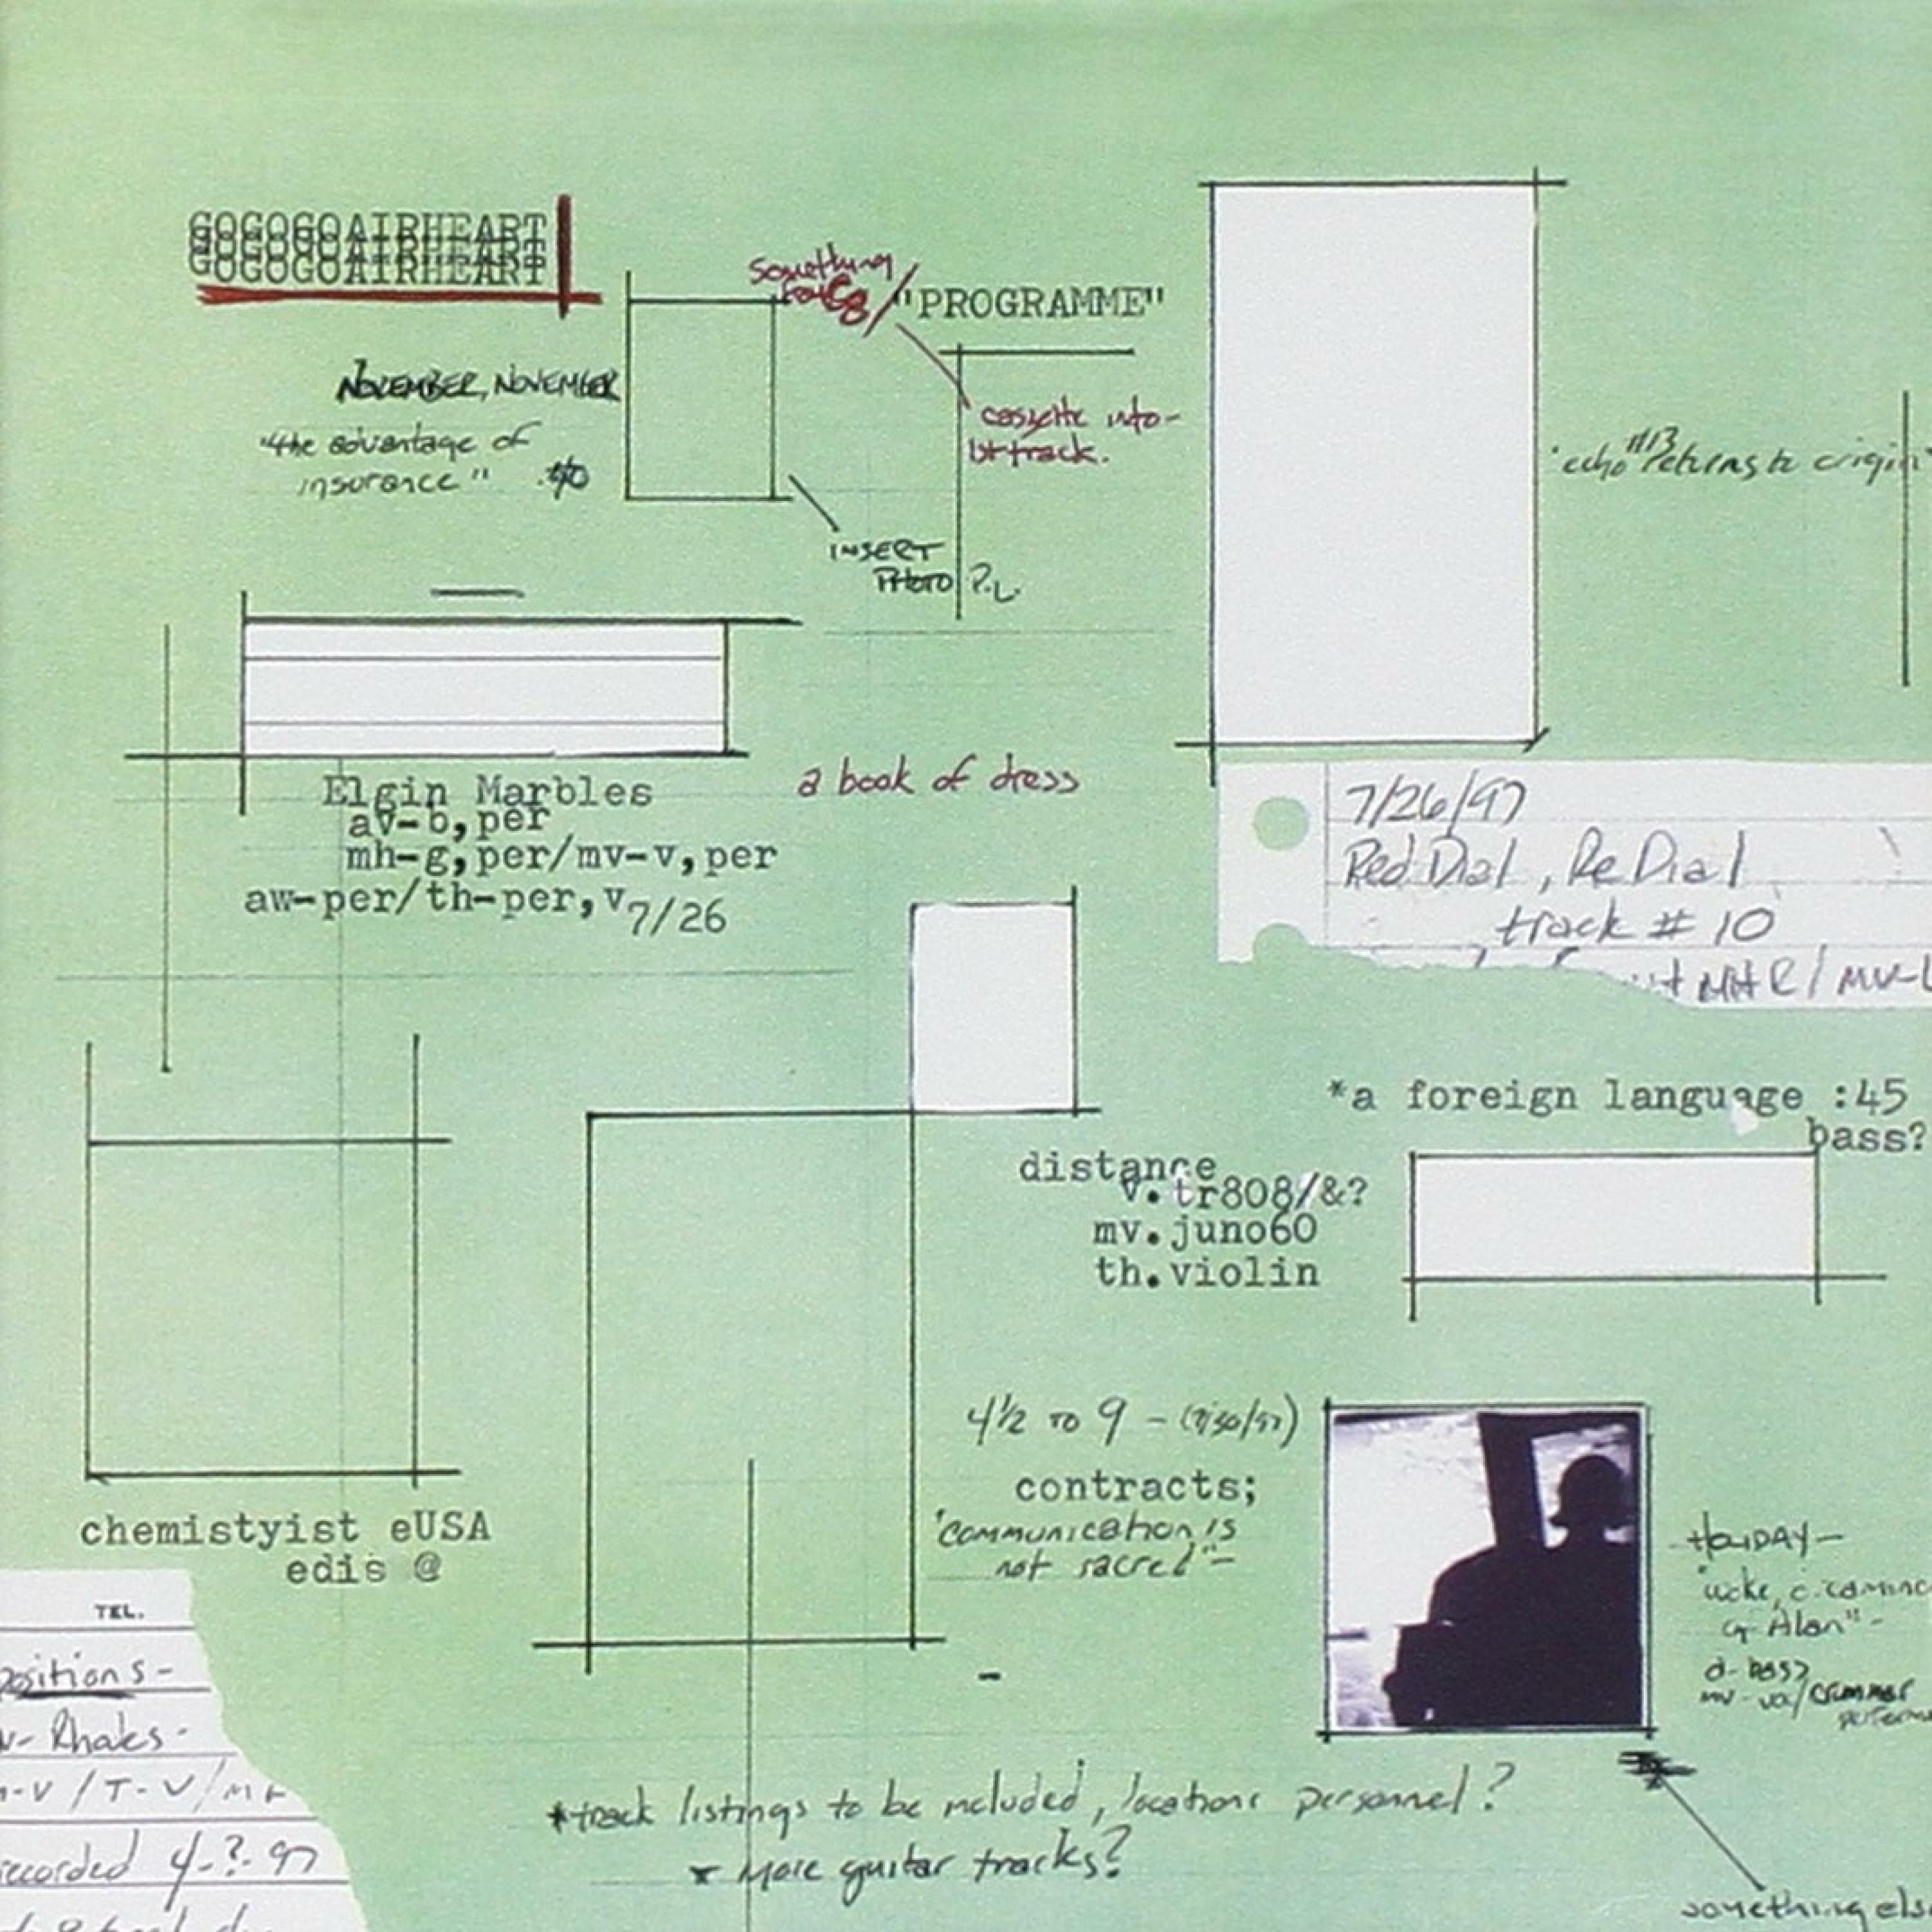 GOGOGOAIRHEART
GOGOGOAIRHEART
GOGOGOAIRHEART
Something
for C8/
"PROGRAMME"
NOVEMBER, NOVEMBER
"the advantage of
insurance"
cassette into-
1st track.
INSERT
PHOTO P.L.
"echo" #13 returns to origin"
Elgin Marbles
av-b,per
mh-g,per/mv-v,per
aw-per/th-per,v 7/26
a book of dress
7/26/97
Red Dial, ReDial
track # 10
MHR/MV-
*a foreign language :45
bass?
distance
v.tr808/&?
mv.juno60
th.violin
4½ TO 9 - (7/30/97)
contracts;
"communication is
not sacred"-
chemistyist eUSA
edis @
HOLIDAY-
Alan"-
d-bass
TEL.
positions-
Rhodes-
-V/T-V/M
recorded 4-?-97
*track listings to be included, locations personnel?
* More guitar tracks?
something els